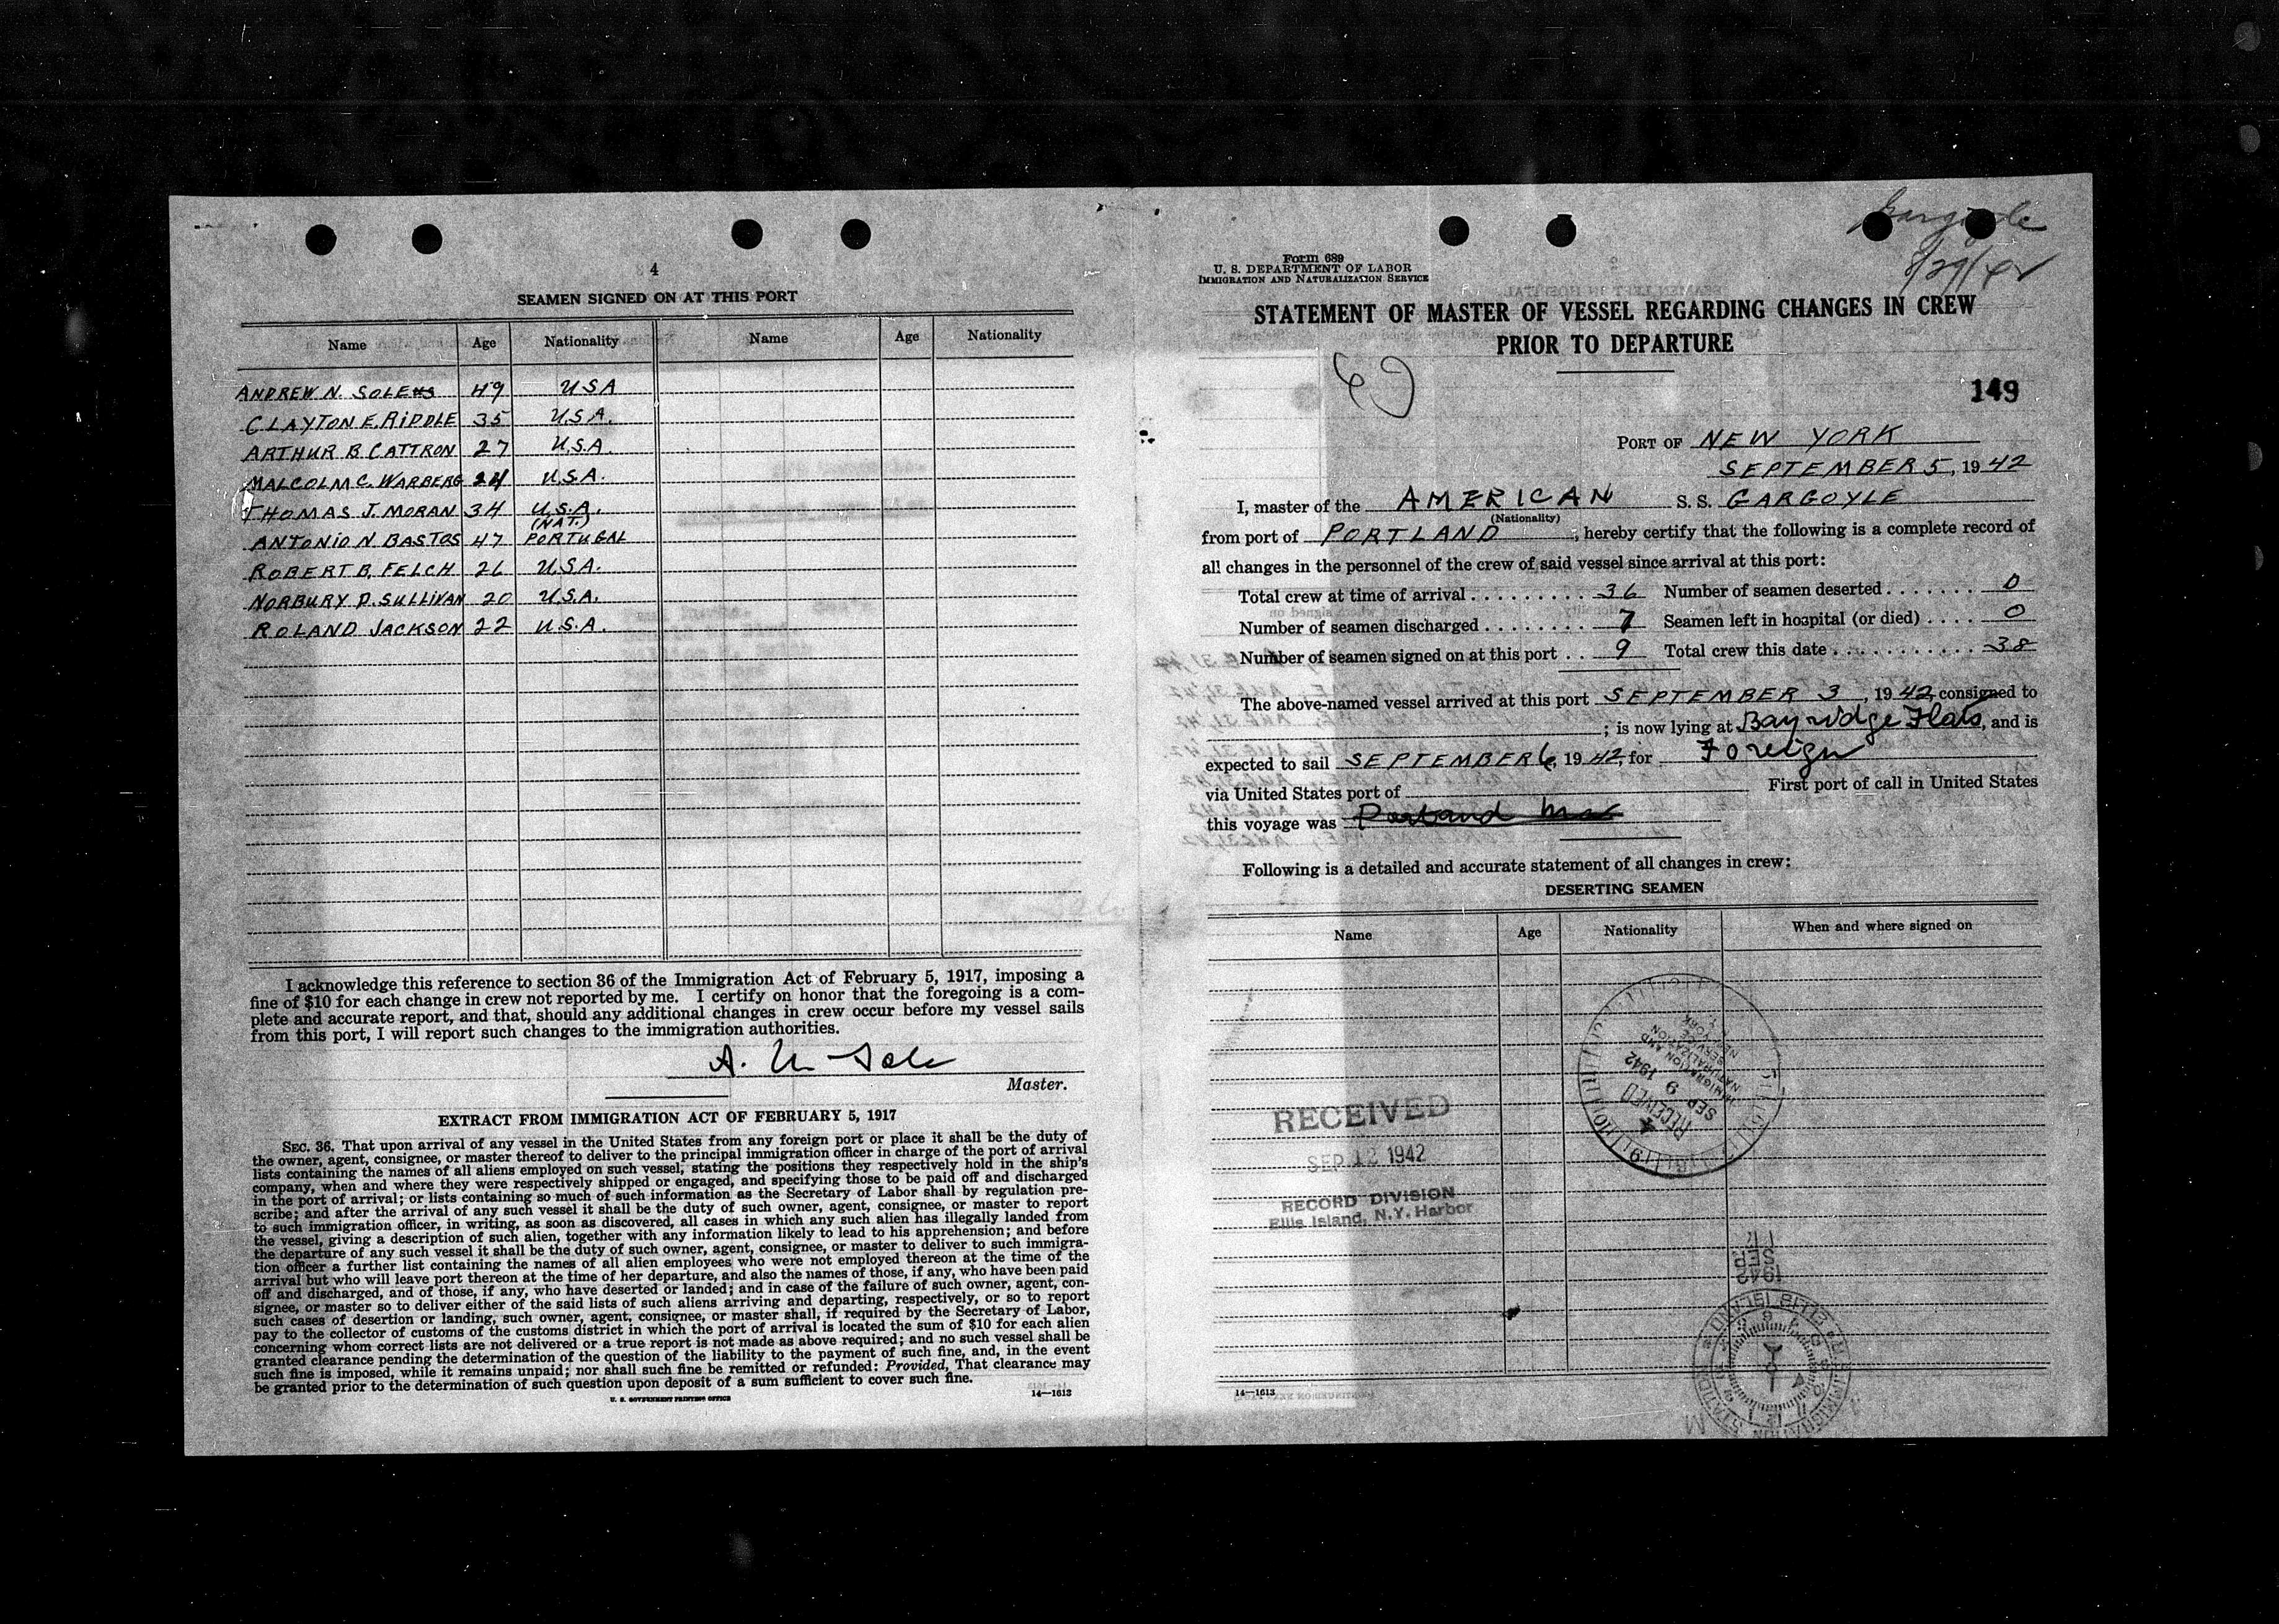 4
SEAMEN SIGNED ON AT THIS PORT
Name Age Nationality Name Age Nationality
ANDREW N. SOLE 49 USA
CLAYTON E. RIDDLE 35 U.S.A.
ARTHUR B. CATTRON 27 U.S.A.
MALCOLM C. WARBERG 24 U.S.A.
THOMAS J. MORAN 34 U.S.A.
(NAT.)
ANTONIO N BASTOS 47 PORTUGAL
ROBERT B. FELCH 26 U.S.A.
NORBURY P. SULLIVAN 20 U.S.A.
ROLAND JACKSON 22 U.S.A.
I acknowledge this reference to section 36 of the Immigration Act of February 5, 1917, imposing a
fine of $10 for each change in crew not reported by me. I certify on honor that the foregoing is a com-
plete and accurate report, and that, should any additional changes in crew occur before my vessel sails
from this port, I will report such changes to the immigration authorities.
A. N Sole
Master.
EXTRACT FROM IMMIGRATION ACT OF FEBRUARY 5, 1917
SEC. 36. That upon arrival of any vessel in the United States from any foreign port or place it shall be the duty of
the owner, agent, consignee, or master thereof to deliver to the principal immigration officer in charge of the port of arrival
lists containing the names of all aliens employed on such vessel, stating the positions they respectively hold in the ship's
company, when and where they were respectively shipped or engaged, and specifying those to be paid off and discharged
in the port of arrival; or lists containing so much of such information as the Secretary of Labor shall by regulation pre-
scribe; and after the arrival of any such vessel it shall be the duty of such owner, agent, consignee, or master to report
to such immigration officer, in writing, as soon as discovered, all cases in which any such alien has illegally landed from
the vessel, giving a description of such alien, together with any information likely to lead to his apprehension; and before
the departure of any such vessel it shall be the duty of such owner, agent, consignee, or master to deliver to such immigra-
tion officer a further list containing the names of all alien employees who were not employed thereon at the time of the
arrival but who will leave port thereon at the time of her departure, and also the names of those, if any, who have been paid
off and discharged, and of those, if any, who have deserted or landed; and in case of the failure of such owner, agent, con-
signee, or master so to deliver either of the said lists of such aliens arriving and departing, respectively, or so to report
such cases of desertion or landing, such owner, agent, consignee, or master shall, if required by the Secretary of Labor,
pay to the collector of customs of the customs district in which the port of arrival is located the sum of $10 for each alien
concerning whom correct lists are not delivered or a true report is not made as above required; and no such vessel shall be
granted clearance pending the determination of the question of the liability to the payment of such fine, and, in the event
such fine is imposed, while it remains unpaid; nor shall such fine be remitted or refunded: Provided, That clearance may
be granted prior to the determination of such question upon deposit of a sum sufficient to cover such fine.
U. S. GOVERNMENT PRINTING OFFICE 14—1613
Gargoyle
8/29/42
Form 689
U. S. DEPARTMENT OF LABOR
IMMIGRATION AND NATURALIZATION SERVICE
STATEMENT OF MASTER OF VESSEL REGARDING CHANGES IN CREW
PRIOR TO DEPARTURE
149
PORT OF NEW YORK
SEPTEMBER 5, 1942
I, master of the AMERICAN S. S. GARGOYLE
(Nationality)
from port of PORTLAND, hereby certify that the following is a complete record of
all changes in the personnel of the crew of said vessel since arrival at this port:
Total crew at time of arrival . . . . . . . . . 36 Number of seamen deserted . . . . . . . 0
Number of seamen discharged . . . . . . . . 7 Seamen left in hospital (or died) . . . . 0
Number of seamen signed on at this port . . 9 Total crew this date . . . . . . . . . . . 38
The above-named vessel arrived at this port SEPTEMBER 3, 1942, consigned to
; is now lying at Bayridge Flats, and is
expected to sail SEPTEMBER 6, 1942, for Foreign
via United States port of First port of call in United States
this voyage was Portland Me
Following is a detailed and accurate statement of all changes in crew:
DESERTING SEAMEN
Name Age Nationality When and where signed on
IMMIGRATION AND
NATURALIZATION
SERVICE
NEW YORK
SEP 9 1942
RECEIVED
RECEIVED
SEP 12 1942
RECORD DIVISION
Ellis Island, N.Y. Harbor
SEP
1942
14—1613